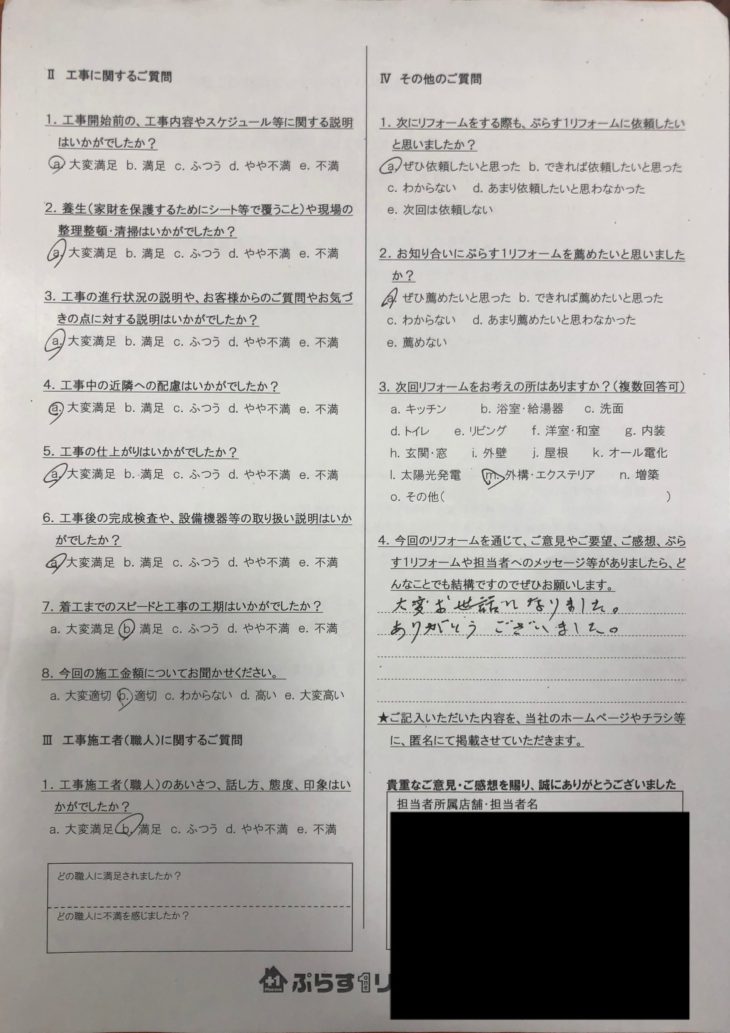 Ⅱ 工事に関するご質問
1. 工事開始前の、工事内容やスケジュール等に関する説明
はいかがでしたか?
a. 大変満足 b. 満足 c. ふつう d. やや不満 e. 不満
2. 養生(家財を保護するためにシート等で覆うこと)や現場の
整理整頓・清掃はいかがでしたか?
a. 大変満足 b. 満足 c. ふつう d. やや不満 e. 不満
3. 工事の進行状況の説明や、お客様からのご質問やお気づ
きの点に対する説明はいかがでしたか?
a. 大変満足 b. 満足 c. ふつう d. やや不満 e. 不満
4. 工事中の近隣への配慮はいかがでしたか?
a. 大変満足 b. 満足 c. ふつう d. やや不満 e. 不満
5. 工事の仕上がりはいかがでしたか?
a. 大変満足 b. 満足 c. ふつう d. やや不満 e. 不満
6. 工事後の完成検査や、設備機器等の取り扱い説明はいか
がでしたか?
a. 大変満足 b. 満足 c. ふつう d. やや不満 e. 不満
7. 着工までのスピードと工事の工期はいかがでしたか?
a. 大変満足 b. 満足 c. ふつう d. やや不満 e. 不満
8. 今回の施工金額についてお聞かせください。
a. 大変適切 b. 適切 c. わからない d. 高い e. 大変高い
Ⅲ 工事施工者(職人)に関するご質問
1. 工事施工者(職人)のあいさつ、話し方、態度、印象はい
かがでしたか?
a. 大変満足 b. 満足 c. ふつう d. やや不満 e. 不満
どの職人に満足されましたか?
どの職人に不満を感じましたか?
Ⅳ その他のご質問
1. 次にリフォームをする際も、ぷらす1リフォームに依頼したい
と思いましたか?
a. ぜひ依頼したいと思った b. できれば依頼したいと思った
c. わからない d. あまり依頼したいと思わなかった
e. 次回は依頼しない
2. お知り合いにぷらす1リフォームを薦めたいと思いました
か?
a. ぜひ薦めたいと思った b. できれば薦めたいと思った
c. わからない d. あまり薦めたいと思わなかった
e. 薦めない
3. 次回リフォームをお考えの所はありますか?(複数回答可)
a. キッチン b. 浴室・給湯器 c. 洗面
d. トイレ e. リビング f. 洋室・和室 g. 内装
h. 玄関・窓 i. 外壁 j. 屋根 k. オール電化
l. 太陽光発電 m. 外構・エクステリア n. 増築
o. その他( )
4. 今回のリフォームを通じて、ご意見やご要望、ご感想、ぷら
す1リフォームや担当者へのメッセージ等がありましたら、ど
んなことでも結構ですのでぜひお願いします。
大変お世話になりました。
ありがとうございました。
★ご記入いただいた内容を、当社のホームページやチラシ等
に、匿名にて掲載させていただきます。
貴重なご意見・ご感想を賜り、誠にありがとうございました
担当者所属店舗・担当者名
ぷらす1リ